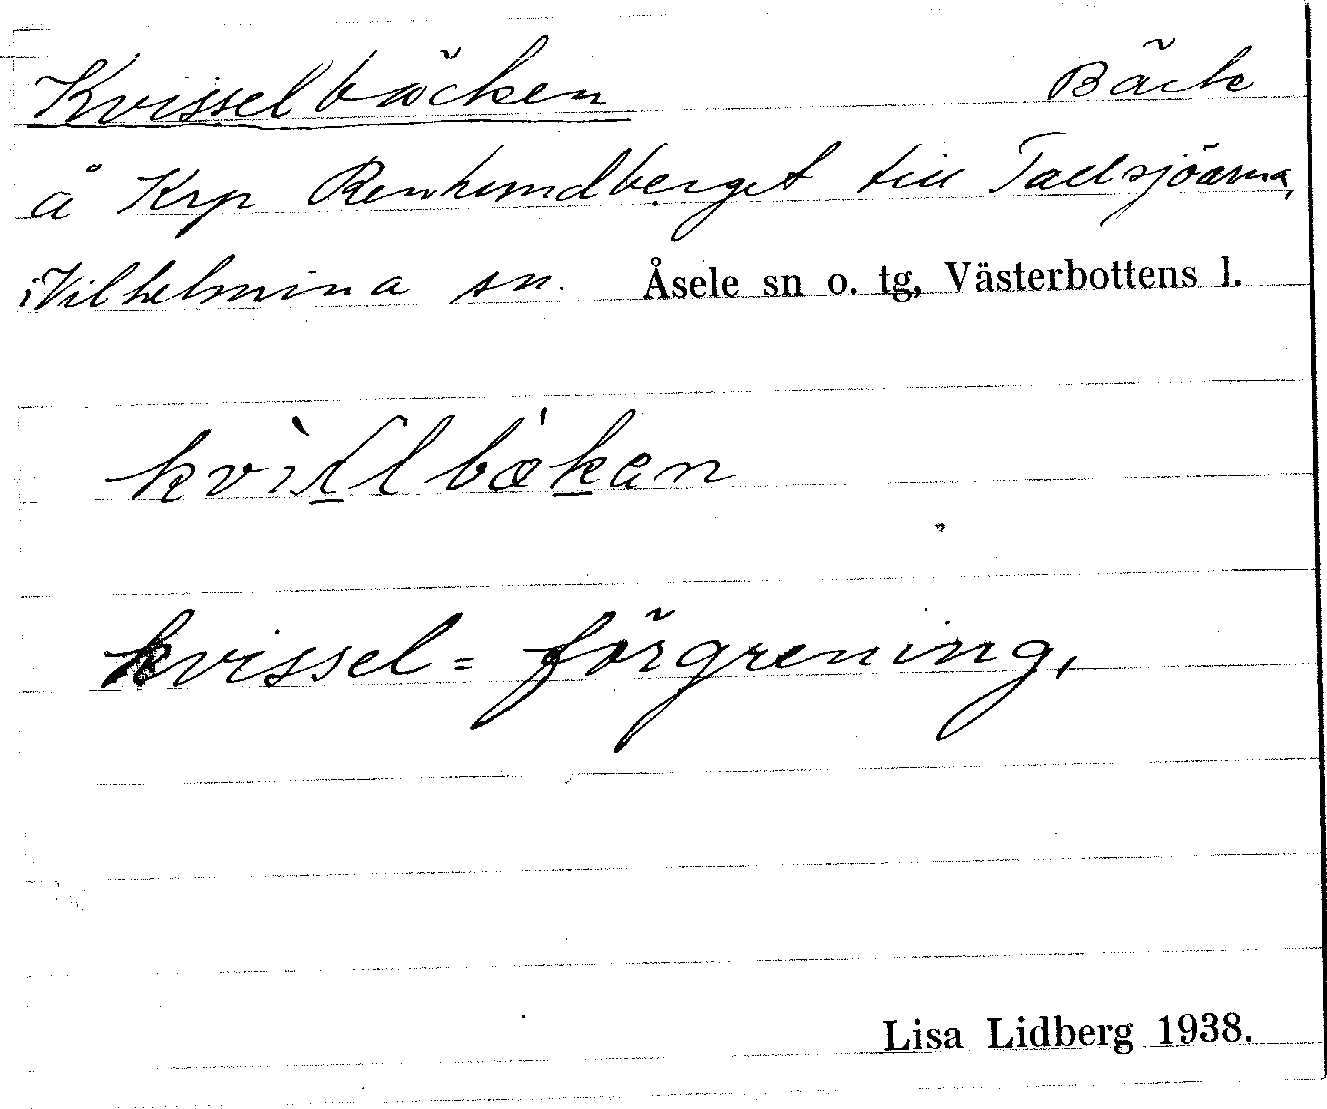 Kvisselbäcken Bäck
å Krp Renhundberget till Tallsjöarna,
i Vilhelmina sn. Åsele sn o. tg, Västerbottens l.
kvissel = förgrening,
Lisa Lidberg 1938.